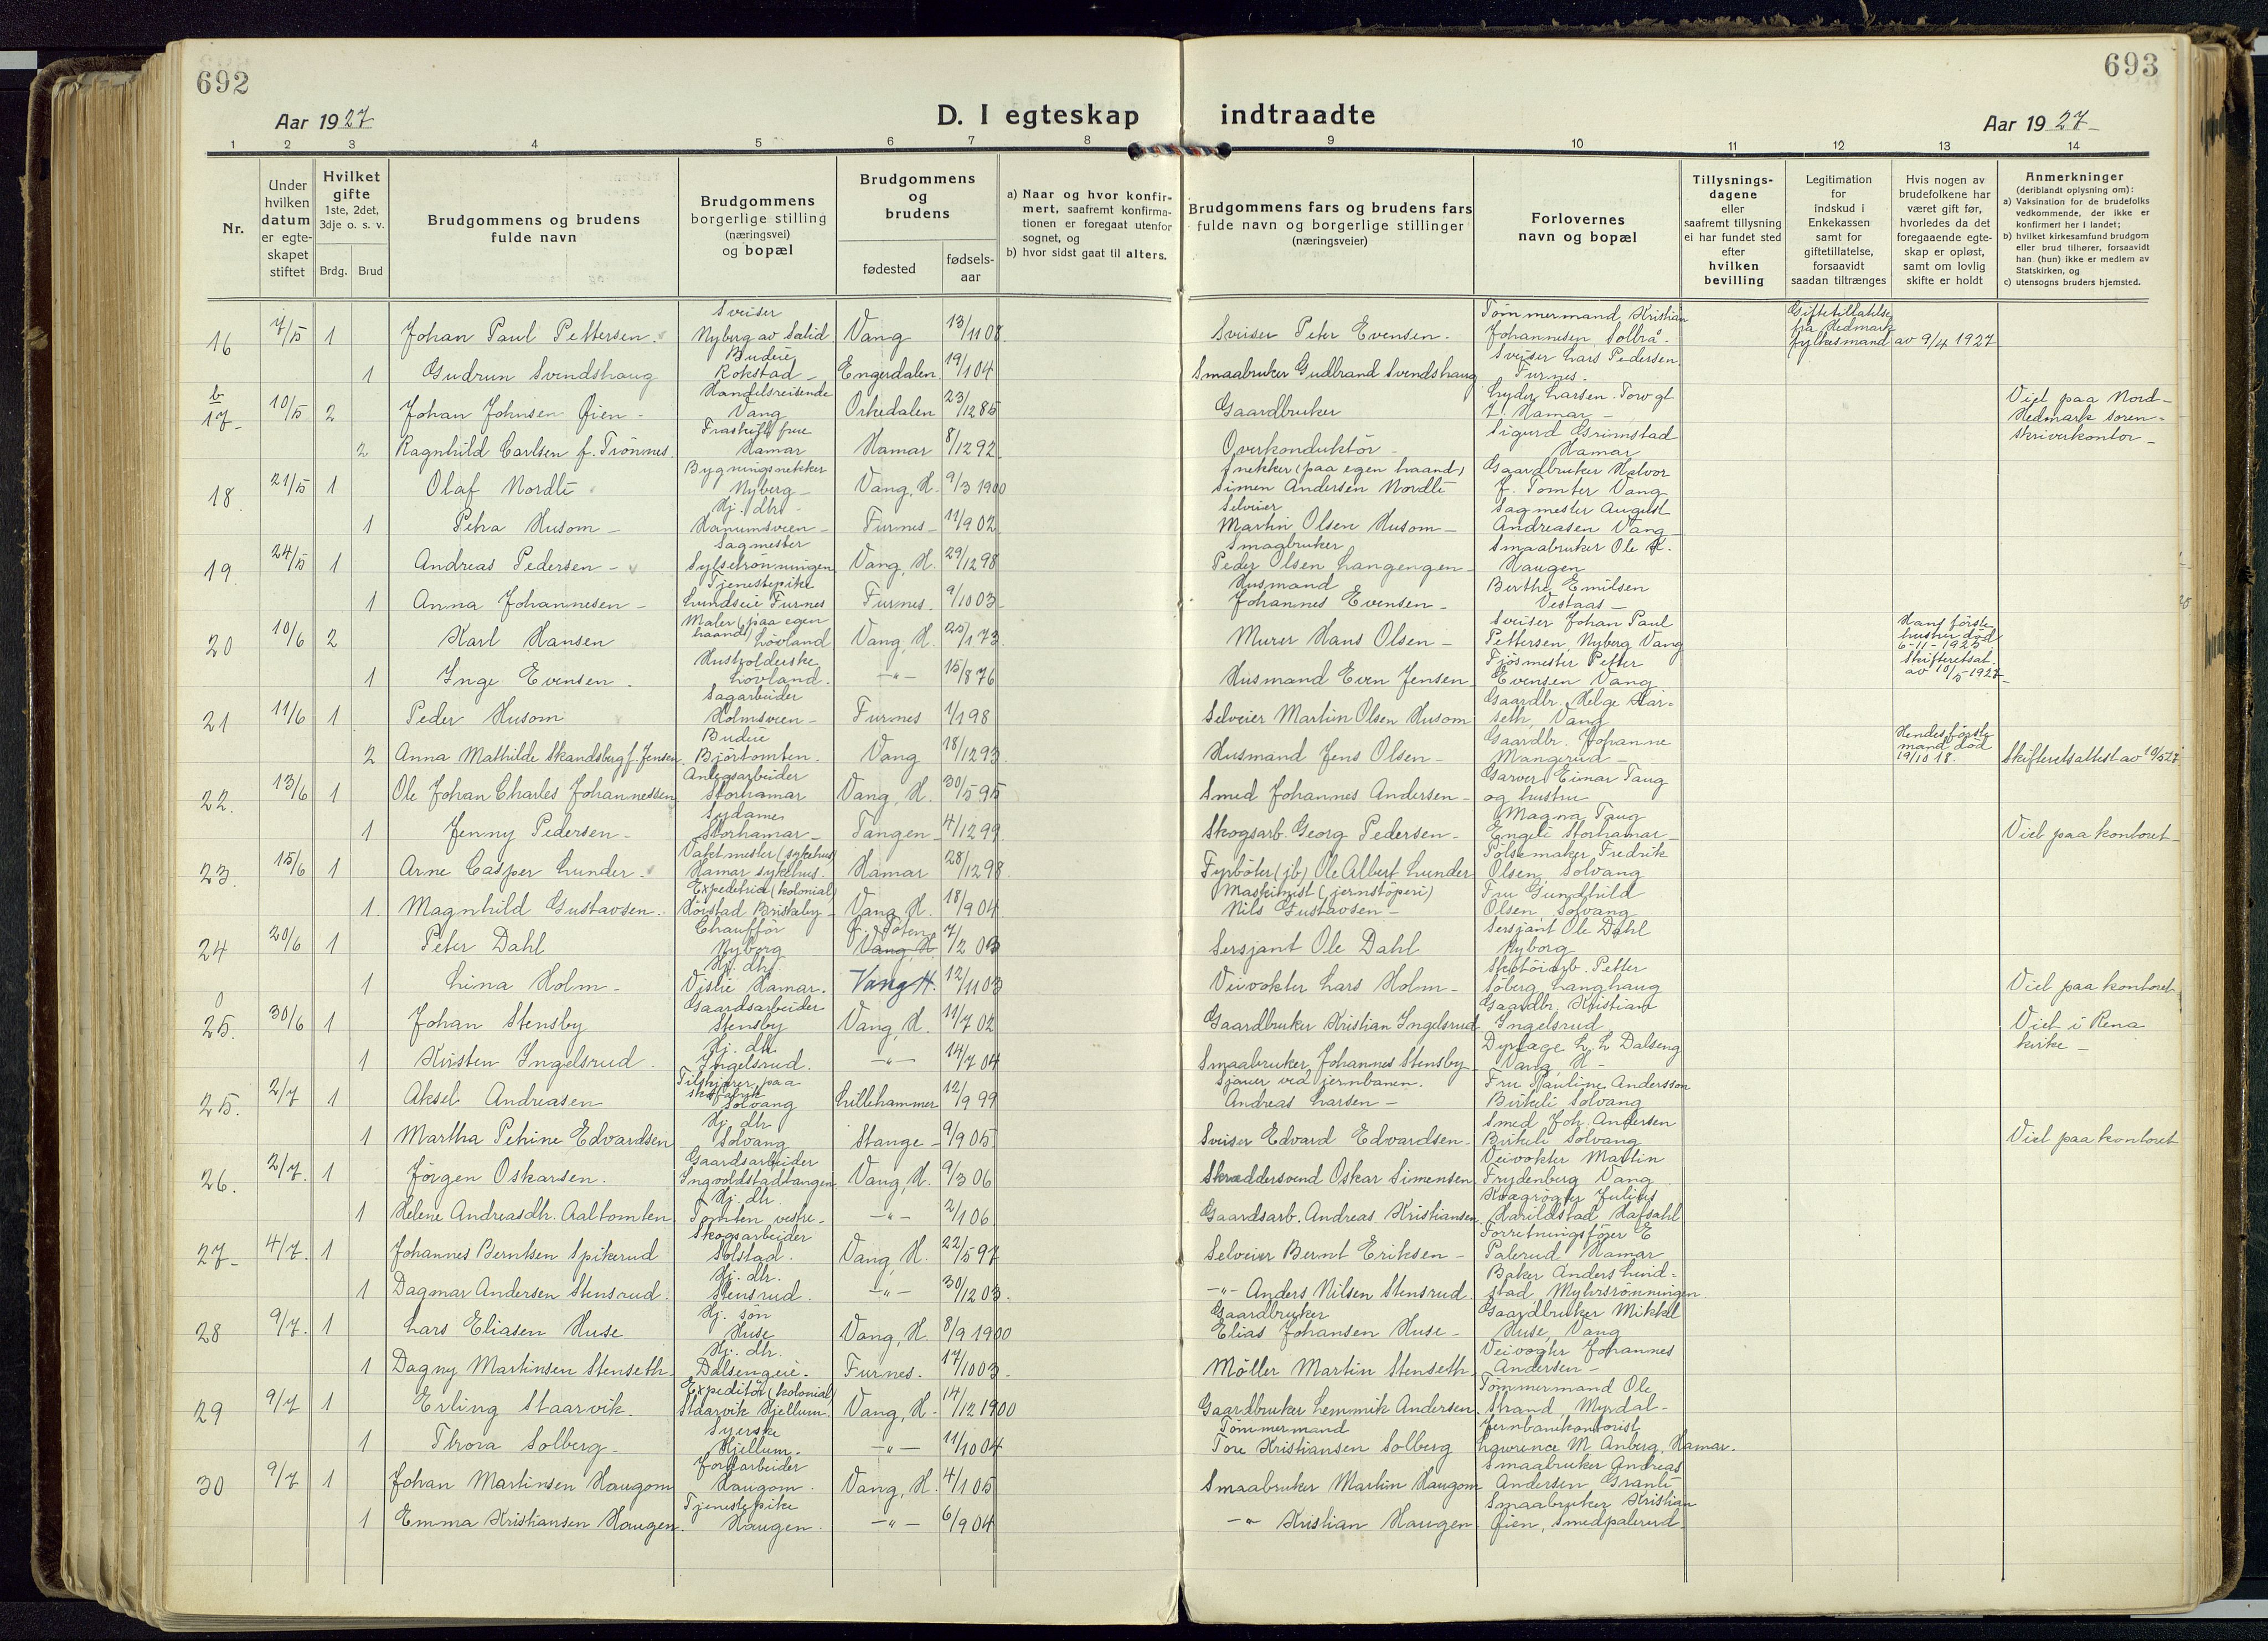 692
693
Aar 1927
D. I egteskap indtraadte
Aar 1927
1 2 3 4 5 6 7 8 9 10 11 12 13 14
Nr.
Under hvilken datum er egte-skapet stiftet
Hvilket gifte 1ste, 2det, 3dje o. s. v.
Brdg. Brud
Brudgommens og brudens fulde navn
Brudgommens borgerlige stilling (næringsvei) og bopæl
Brudgommens og brudens
fødested
fødsels-aar
a) Naar og hvor konfir-mert, saafremt konfirma-tionen er foregaat utenfor sognet, og
b) hvor sidst gaat til alters.
Brudgommens fars og brudens fars fulde navn og borgerlige stillinger (næringsveier)
Forlovernes navn og bopæl
Tillysnings-dagene eller saafremt tillysning ei har fundet sted efter hvilken bevilling
Legitimation for indskud i Enkekassen samt for giftetillatelse, forsaavidt saadan tiltrænges
Hvis nogen av brudefolkene har været gift før, hvorledes da det foregaaende egte-skap er opløst, samt om lovlig skifte er holdt
Anmerkninger (deriblandt oplysning om):
a) Vaksination for de brudefolks vedkommende, der ikke er konfirmert her i landet;
b) hvilket kirkesamfund brudgom eller brud tilhører, forsaavidt han (hun) ikke er medlem av Statskirken, og
c) utensogns bruders hjemsted.
16 7/5 1 Johan Paul Pettersen. Sveiser Nyberg av Sælid Vang 13/11 08. Sveiser Peter Evensen. Tömmermand Kristian Johannesen Solbrå. Giftetillatelse fra Hedmark fylkesmand av 9/4 1927
1 Gudrun Svendshaug Budeie Rokstad Engerdalen 19/1 04 Smaabruker Gudbrand Svendshaug Sveiser Lars Pedersen Furnes.
17 10/5 2 Johan Johnsen Öien Handelsreisende Vang Orkedalen 23/12 85 Gaardbruker Lyder Larsen. Torvgt 7. Hamar Viet paa Nord-Hedmark soren-skriverkontor
2 Ragnhild Carlsen f. Trönnes. Fraskilt frue Hamar Hamar 8/12 92 Overkonduktör Sigurd Grimstad Hamar
18. 21/5 1 Olaf Nordli Bygningsnekker Nyberg Vang, H. 9/3 1900 Snekker (paa egen haand) Simen Andersen Nordli Gaardbruker Halvor f. Tomter Vang
1 Petra Husom Hj. dtr. Hanumsveen Furnes 11/9 02 Selveier Martin Olsen Husom Sagmester August Andreasen Vang
19. 24/5 1 Andreas Pedersen Sagmester Sylseirönningen Vang, H. 29/12 98 Smaabruker Peder Olsen Langengen Smaabruker Ole K. Haugen
1 Anna Johannesen Tjenestepike Lundseie Furnes Furnes. 9/10 03 Husmand Johannes Evensen Berthe Emilsen Vestaas
20 10/6 2 Karl Hansen Maler (paa egen haand) Lövland Vang, H. 25/1 73 Murer Hans Olsen Sveiser Johan Paul Pettersen, Nyberg Vang Hans förste hustru död 6-11-1925. Skifteretsat. av 18/5-1927
1 Inge Evensen. Husholderske Lövland. -"- 15/8 76 Husmand Even Jensen Fjösmester Petter Evensen Vang
21 11/6 1 Peder Husom Sagarbeider Holmsveen Furnes 1/1 98 Selveier Martin Olsen Husom Gaardbr. Helge Har-seth, Vang
2 Anna Mathilde Skandsberg f. Jensen. Budeie Björtomten. Vang 18/12 93 Husmand Jens Olsen Gaardbr. Johanne Mangerud Hendes förste mand död 19/10 18. Skifteretsattest av 10/5 27
22. 13/6 1 Ole Johan Charles Johannessen Anlegsarbeider Storhamar Vang, H. 30/5 95 Smed Johannes Andersen Garver Einar Taug og hustru
1 Jenny Pedersen Sydame Storhamar Tangen 4/12 99 Skogsarb. Georg Pedersen Magna Taug Engeli Storhamar Viet paa kontoret
23. 15/6 1 Arne Casper Lunder. Vaktmester (sykehus) Hamar sykehus. Hamar 28/12 98. Fyrböter (jb) Ole Albert Lunder Pölsemaker Fredrik Olsen, Solvang
1. Magnhild Gustavsen. Expeditrice (kolonial) Hörstad Briskeby Vang H. 18/9 04 Maskinist (jernstöperi) Nils Gustavsen Fru Gundhild Olsen, Solvang
24 20/6 1 Peter Dahl Chaufför Nyborg Ö. Toten Vang, H. 7/2 03 Sersjant Ole Dahl Sersjant Ole Dahl Nyborg
1 Lina Holm Hj. dtr. Vislie Hamar. Vang H. 12/11 03 Veivokter Lars Holm Skotöiarb. Petter Söberg Langhaug Viet paa kontoret
25. 30/6 1 Johan Stensby Gaardsarbeider Stensby Vang, H. 11/7 02 Gaardbruker Kristian Ingelsrud Gaardbr. Kristian Ingelsrud Viet i Rena kirke
1 Kirsten Ingelsrud. Hj. dtr. Ingelsrud. -"- 14/7 04 Smaabruker Johannes Stensby Dyrlæge L. L. Dalseng Vang, H
25. 2/7 1 Aksel Andreasen Tilskjærer paa skofabrik Solvang Lillehammer 12/9 99 Sjauer ved jernbanen. Andreas Larsen Fru Pauline Andersson Birkeli Solvang
1 Martha Petrine Edvardsen Hj. dtr. Solvang Stange 9/9 05 Sveiser Edvard Edvardsen Smed Joh. Andersen Birkeli Solvang Viet paa kontoret
26. 2/7. 1 Jörgen Oskarsen. Gaardsarbeider Ingvoldstadtangen Vang, H. 9/3 06 Skræddersvend Oskar Simensen Veivokter Martin Frydenberg Vang
1 Helene Andreasdtr. Aaltomten Hj. dtr. Tomten vestre. -"- 2/1 06. Gaardsarb. Andreas Kristiansen. Julius Harildstad Hafsahl
27 4/7. 1 Johannes Berntsen Spikerud Skogsarbeider Solstad. Vang, H. 22/5 97 Selveier Bernt Eriksen Forretningsförer E Palerud Hamar
1 Dagmar Andersen Stensrud. Hj. dtr. Stensrud. -"- 30/12 03. -"- Anders Nilsen Stensrud. Baker Anders Lind-stad Myhrsrönningen.
28 9/7. 1 Lars Eliasen Huse Hj. sön Huse Vang, H. 8/9 1900 Gaardbruker Elias Johansen Huse Gaardbruker Mikkel Huse, Vang
1 Dagny Martinsen Stenseth. Hj. dtr. Dalsengeie. Furnes. 17/10 03. Möller Martin Stenseth Veivogter Johannes Andersen
29 9/7 1 Erling Staarvik. Expeditör (kolonial) Staarvik Hjellum. Vang, H. 14/12 1900 Gaardbruker Lemmik Andersen. Tömmermand Ole Strand Myrdal
1 Thora Solberg Syerske Hjellum. -"- 11/10 04 Tömmermand Tore Kristiansen Solberg Jernbanekontorist Lawrence M. Anberg, Hamar.
30 9/7 1 Johan Martinsen Haugom Jordarbeider Haugom. Vang, H. 4/1 05 Smaabruker Martin Haugom Smaabruker Andreas Andersen Granli
1 Emma Kristiansen Haugen. Tjenestepike Haugen. -"- 6/9 04 -"- Kristian Haugen Smaabruker Kristian Öien, Smedpalerud.